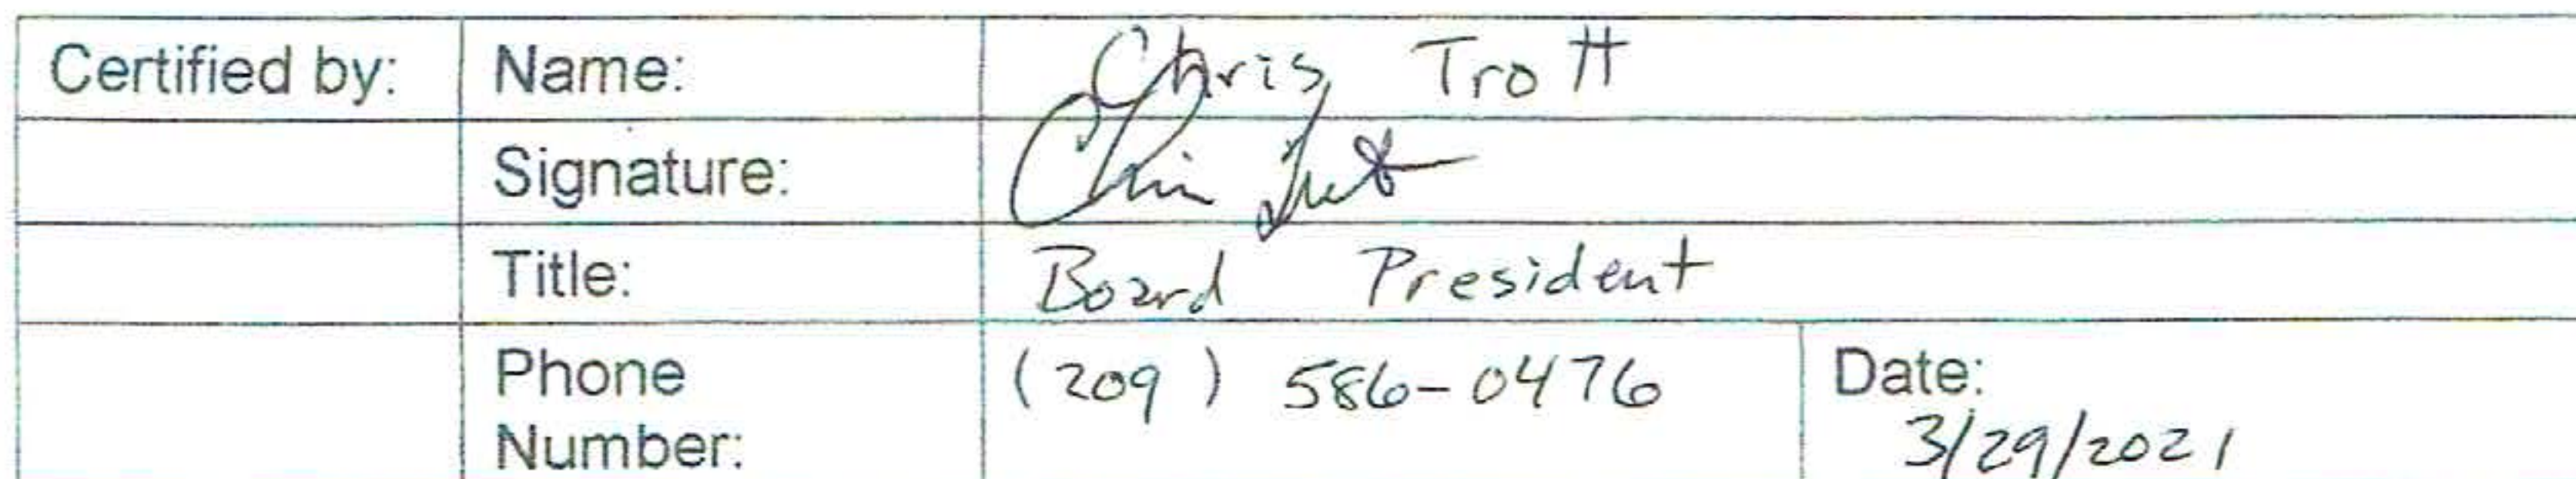 Certified by: Name: Chris Trott
Signature: Chris Trott
Title: Board President
Phone Number: (209) 586-0476 Date: 3/29/2021